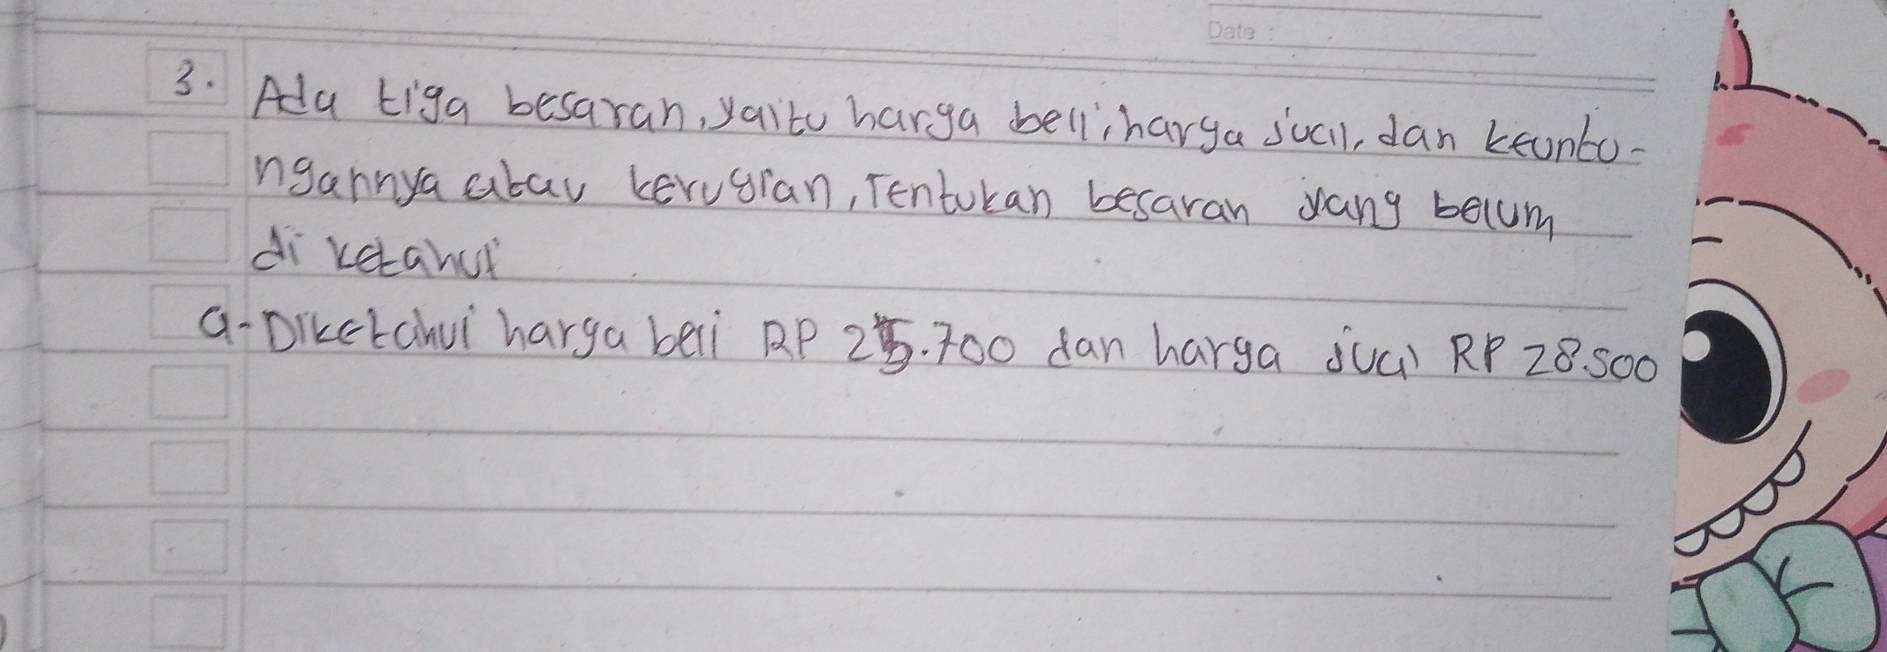 Date :
3. Ada tiga besaran, yaitu harga beli, harga jual, dan keuntu-
ngannya atau kerugian, Tentukan besaran yang belum
di ketahui
a. Diketahui harga beli RP 25.700 dan harga jual RP 28.500